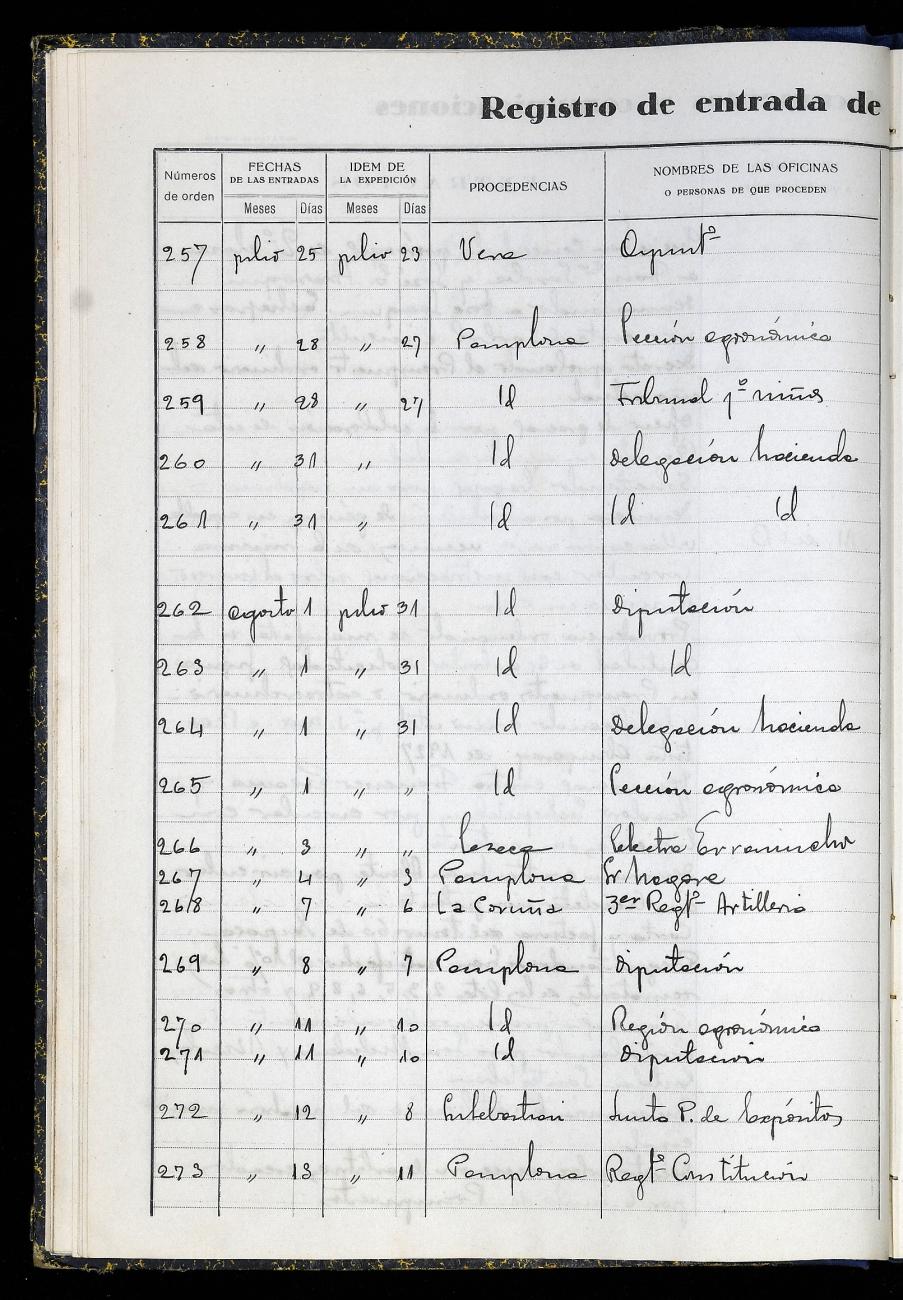 Registro de entrada de
Números de orden FECHAS DE LAS ENTRADAS IDEM DE LA EXPEDICIÓN PROCEDENCIAS NOMBRES DE LAS OFICINAS O PERSONAS DE QUE PROCEDEN
Meses Días Meses Días
257 julio 25 julio 23 Vera Ayuntº
258 " 28 " 27 Pamplona Sección agronómica
259 " 28 " 27 Id Tribunal 1º niños
260 " 31 " Id Delegación hacienda
261 " 31 " Id Id Id
262 agosto 1 julio 31 Id Diputación
263 " 1 " 31 Id Id
264 " 1 " 31 Id Delegación hacienda
265 " 1 " " Id Sección agronómica
266 " 3 " " Lesaca Electra
267 " 4 " 3 Pamplona Sr
268 " 7 " 6 La Coruña 3er Regtº Artilleria
269 " 8 " 7 Pamplona Diputación
270 " 11 " 10 Id Región agronómica
271 " 11 " 10 Id Diputación
272 " 12 " 8 Junta P. de Expósitos
273 " 13 " 11 Pamplona Regtº Constitución